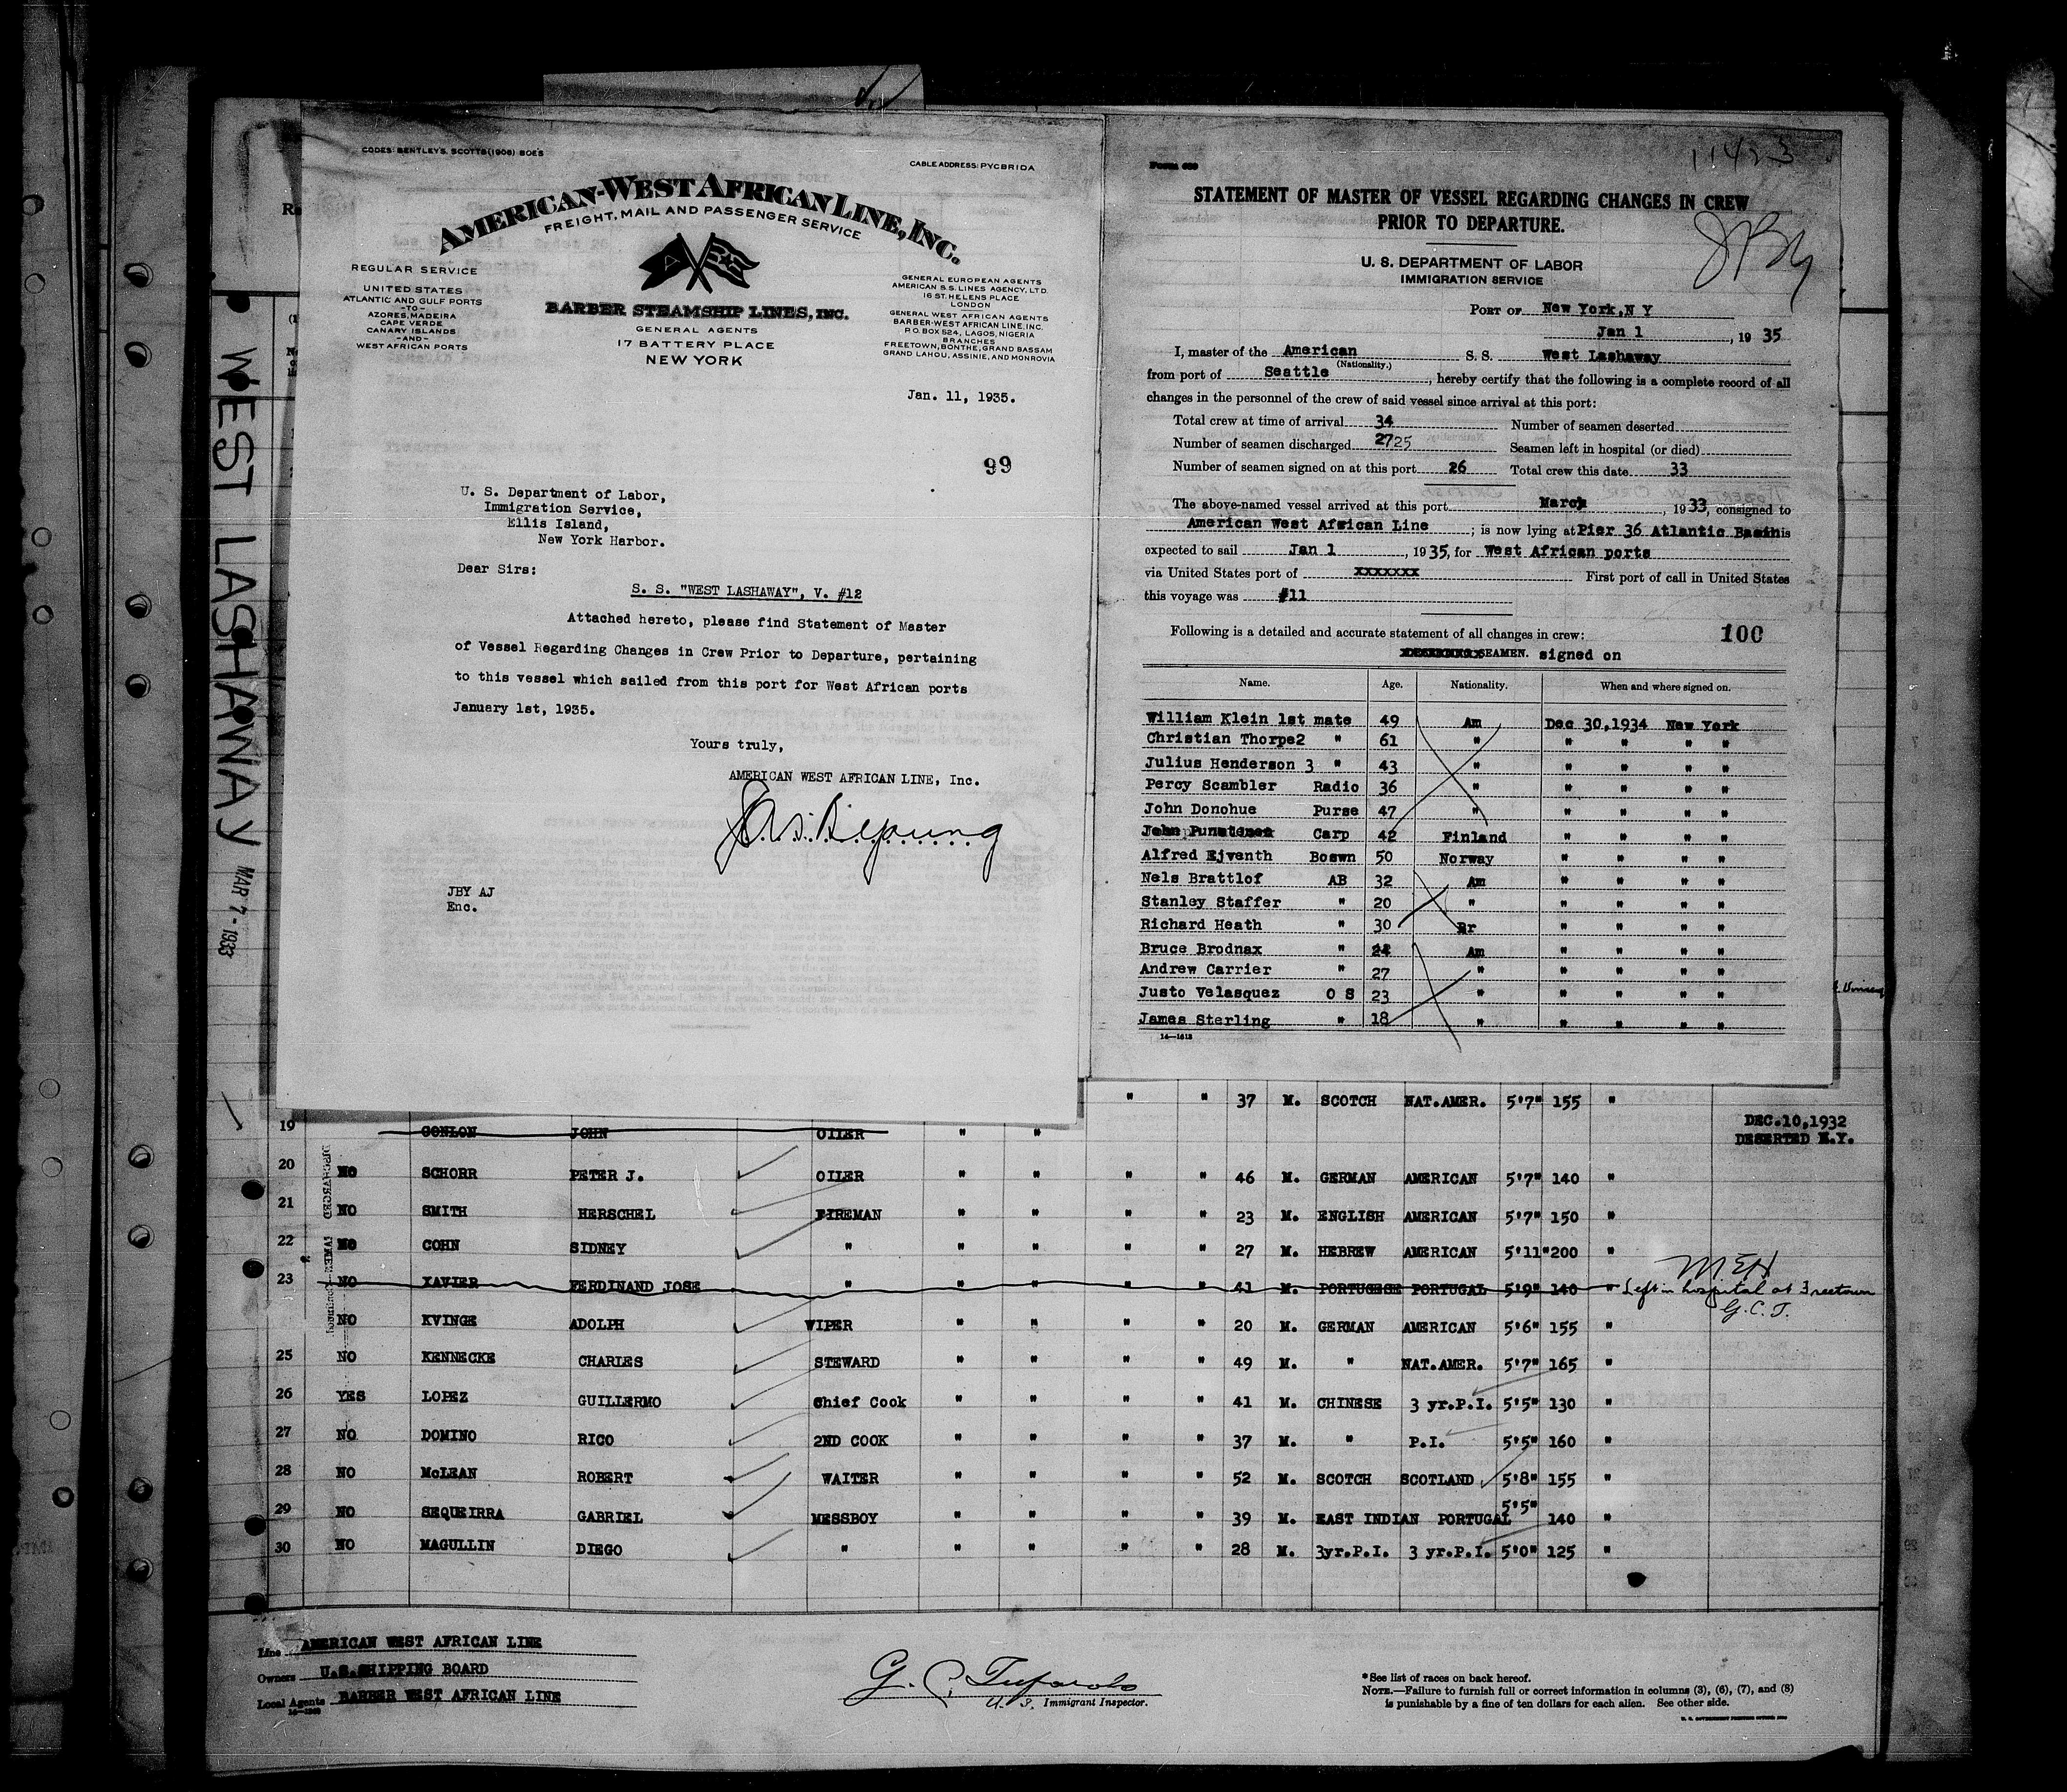 CODES: BENTLEY'S, SCOTTS (1906) BOE'S
CABLE ADDRESS: PYCBRIDA
AMERICAN-WEST AFRICAN LINE, INC.
FREIGHT, MAIL AND PASSENGER SERVICE
REGULAR SERVICE
UNITED STATES
ATLANTIC AND GULF PORTS
-TO-
AZORES, MADEIRA
CAPE VERDE
CANARY ISLANDS
-AND-
WEST AFRICAN PORTS
BARBER STEAMSHIP LINES, INC.
GENERAL AGENTS
17 BATTERY PLACE
NEW YORK
GENERAL EUROPEAN AGENTS
AMERICAN S.S. LINES AGENCY, LTD.
16 ST. HELENS PLACE
LONDON
GENERAL WEST AFRICAN AGENTS
BARBER-WEST AFRICAN LINE, INC.
P.O. BOX 524, LAGOS, NIGERIA
BRANCHES
FREETOWN, BONTHE, GRAND BASSAM
GRAND LAHOU, ASSINIE, AND MONROVIA
Jan. 11, 1935.
99
U. S. Department of Labor,
Immigration Service,
Ellis Island,
New York Harbor.
Dear Sirs:
S. S. "WEST LASHAWAY", V. #12
Attached hereto, please find Statement of Master
of Vessel Regarding Changes in Crew Prior to Departure, pertaining
to this vessel which sailed from this port for West African ports
January 1st, 1935.
Yours truly,
AMERICAN WEST AFRICAN LINE, Inc.
JBY AJ
Enc.
WEST LASHAWAY MAR 7 - 1933
11423
Form 689
STATEMENT OF MASTER OF VESSEL REGARDING CHANGES IN CREW
PRIOR TO DEPARTURE.
JBY
U. S. DEPARTMENT OF LABOR
IMMIGRATION SERVICE
PORT OF New York, N Y
Jan 1, 1935
I, master of the American S. S. West Lashaway
(Nationality.)
from port of Seattle, hereby certify that the following is a complete record of all
changes in the personnel of the crew of said vessel since arrival at this port:
Total crew at time of arrival 34 Number of seamen deserted
Number of seamen discharged 27 25 Seamen left in hospital (or died)
Number of seamen signed on at this port 26 Total crew this date 33
The above-named vessel arrived at this port March, 1933, consigned to
American West African Line; is now lying at Pier 36 Atlantic Basin is
expected to sail Jan 1, 1935, for West African ports
via United States port of xxxxxxx First port of call in United States
this voyage was #11
Following is a detailed and accurate statement of all changes in crew: 100
SEAMEN. signed on
Name. Age. Nationality. When and where signed on.
William Klein 1st mate 49 Am Dec 30, 1934 New York
Christian Thorpe 2 " 61 " " " " "
Julius Henderson 3 " 43 " " " " "
Percy Scambler Radio 36 " " " " "
John Donohue Purse 47 " " " " "
Carp 42 Finland " " " "
Alfred Ejventh Boswn 50 Norway " " " "
Nels Brattlof AB 32 Am " " " "
Stanley Staffer " 20 " " " " "
Richard Heath " 30 Br " " " "
Bruce Brodnax " 24 Am " " " "
Andrew Carrier " 27 " " " " "
Justo Velasquez O S 23 " " " " "
James Sterling " 18 " " " " "
14-1613
" " 37 M. SCOTCH NAT.AMER. 5'7" 155 "
19 CONLON JOHN OILER " " DEC.10,1932
DESERTED N.Y.
20 NO SCHORR PETER J. OILER " " " " 46 M. GERMAN AMERICAN 5'7" 140 "
21 NO SMITH HERSCHEL FIREMAN " " " " 23 M. ENGLISH AMERICAN 5'7" 150 "
22 NO COHN SIDNEY " " " " " 27 M. HEBREW AMERICAN 5'11" 200 "
MEH
23 NO XAVIER FERDINAND JOSE " " " " " 41 M. PORTUGESE PORTUGAL 5'9" 140 " Left in hospital at Freetown
G.C.T.
NO KVINGE ADOLPH WIPER " " " " 20 M. GERMAN AMERICAN 5'6" 155 "
25 NO KENNECKE CHARLES STEWARD " " " " 49 M. " NAT.AMER. 5'7" 165 "
26 YES LOPEZ GUILLERMO Chief Cook " " " " 41 M. CHINESE 3 yr.P.I. 5'5" 130 "
27 NO DOMINO RICO 2ND COOK " " " " 37 M. " P.I. 5'5" 160 "
28 NO McLEAN ROBERT WAITER " " " " 52 M. SCOTCH SCOTLAND 5'8" 155 "
29 NO SEQUEIRRA GABRIEL MESSBOY " " " " 39 M. EAST INDIAN PORTUGAL 5'5" 140 "
30 NO MAGULLIN DIEGO " " " " " 28 M. 3yr.P.I. 3 yr.P.I. 5'0" 125 "
Line AMERICAN WEST AFRICAN LINE
Owners U.S.SHIPPING BOARD
Local Agents BARBER WEST AFRICAN LINE
U. S. Immigrant Inspector.
*See list of races on back hereof.
NOTE.—Failure to furnish full or correct information in columns (3), (6), (7), and (8)
is punishable by a fine of ten dollars for each alien. See other side.